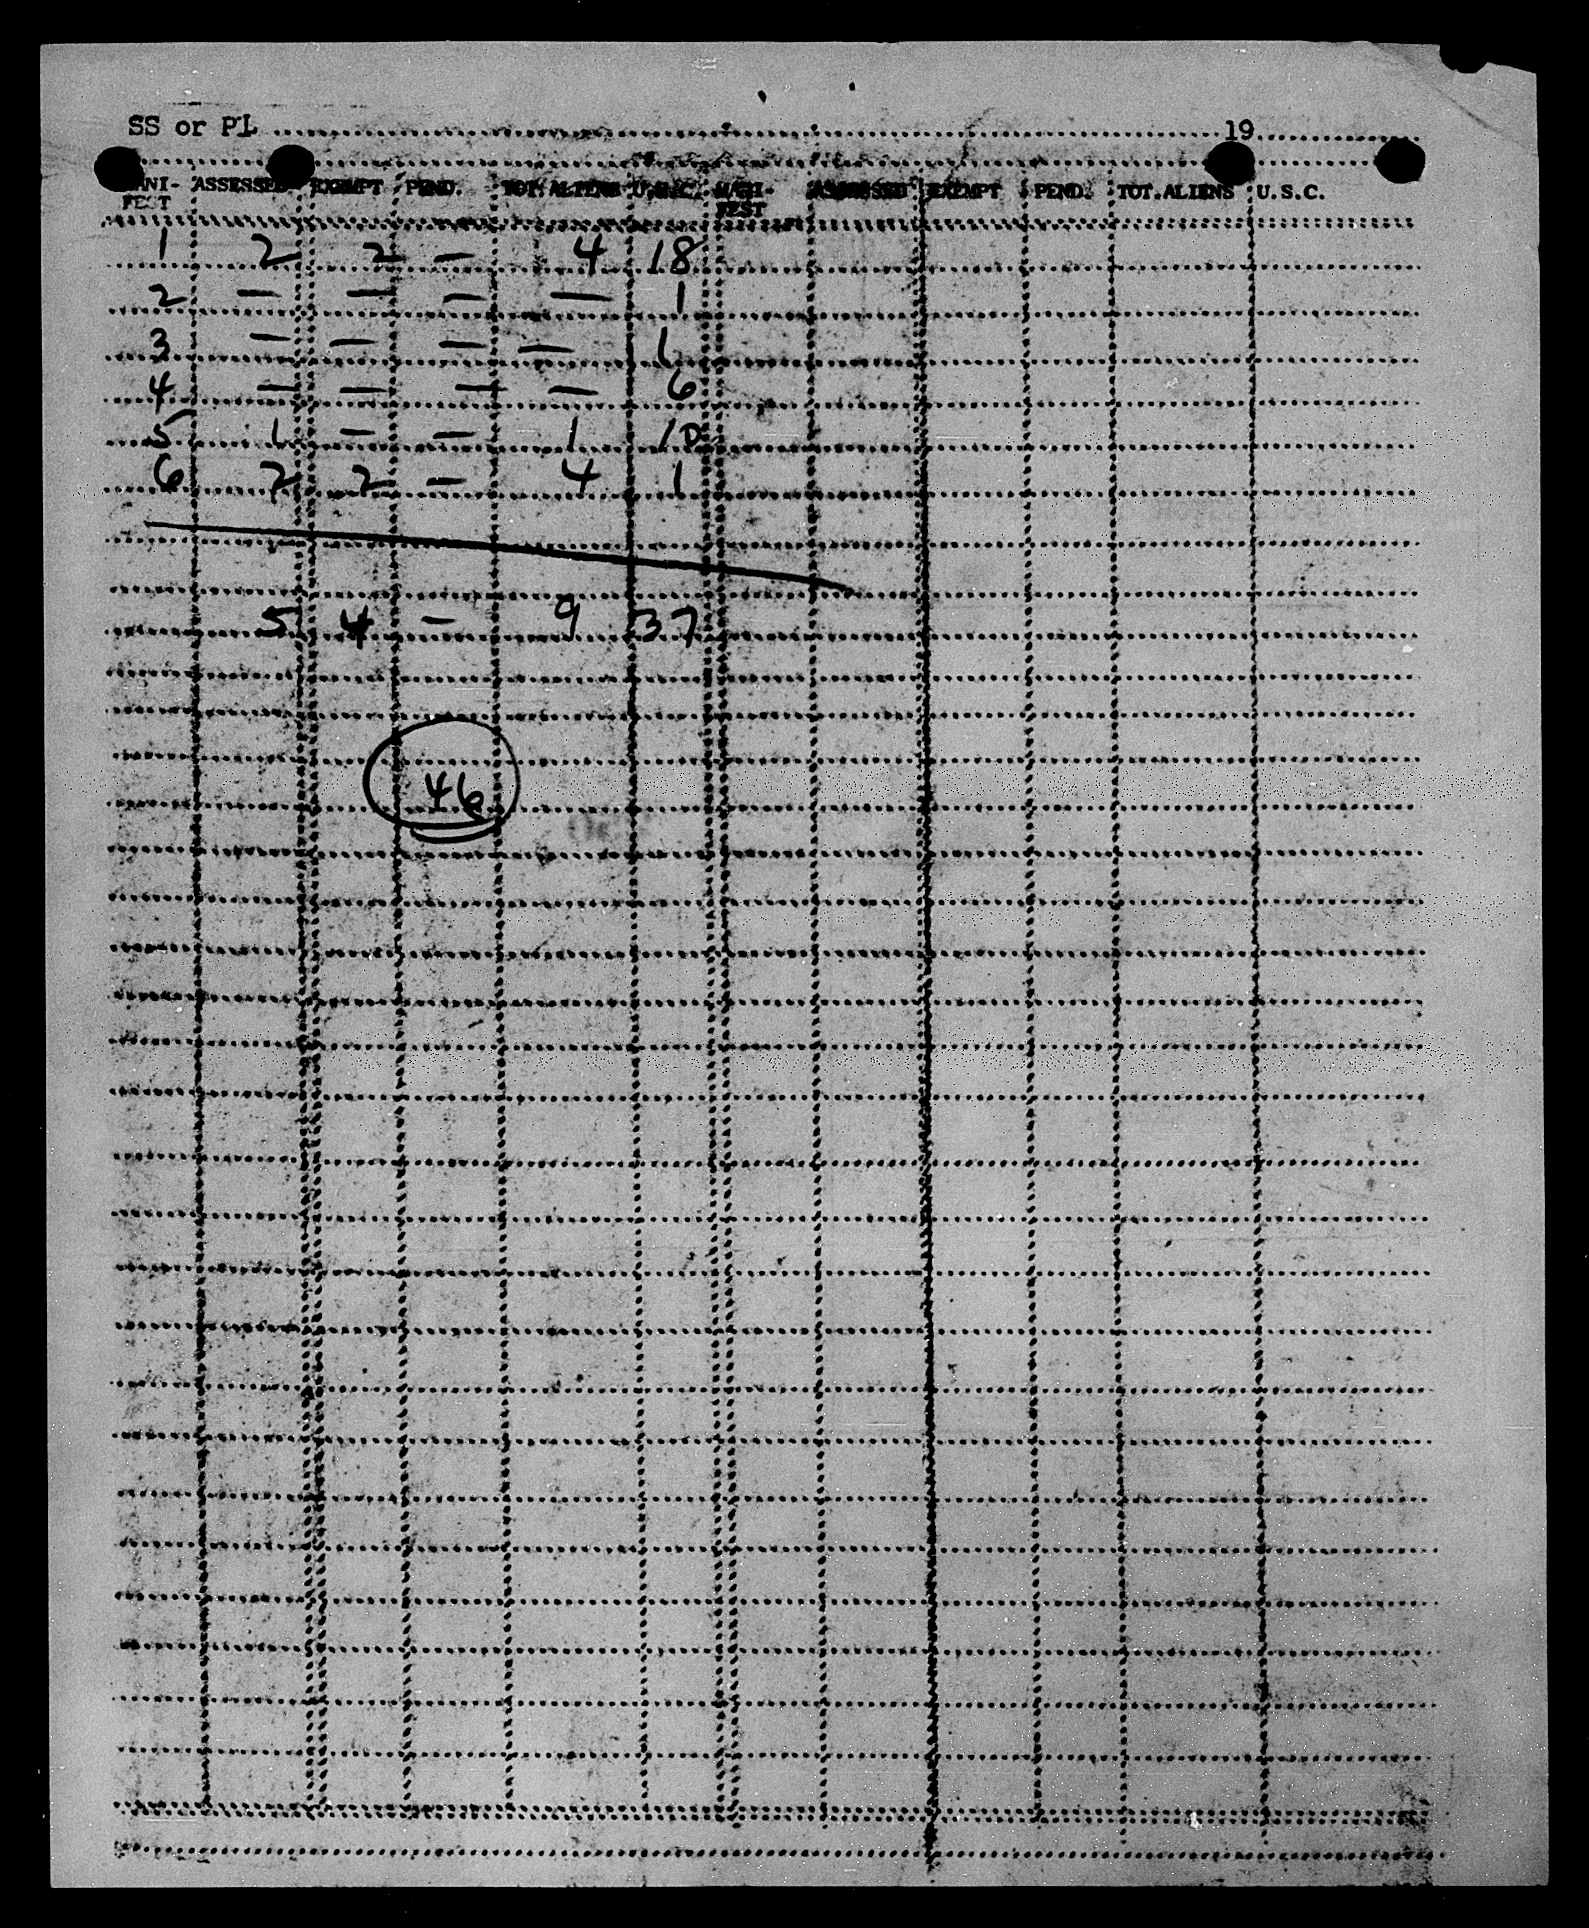 SS or PL 19
MANI- ASSESSED EXEMPT PEND. TOT. ALIENS U.S.C. MANI- ASSESSED EXEMPT PEND. TOT.ALIENS U.S.C.
FEST FEST
1 2 2 — 4 18
2 — — — — 1
3 — — — — 1
4 — — — — 6
5 1 — — 1 10
6 2 2 — 4 1
5 4 — 9 37
46